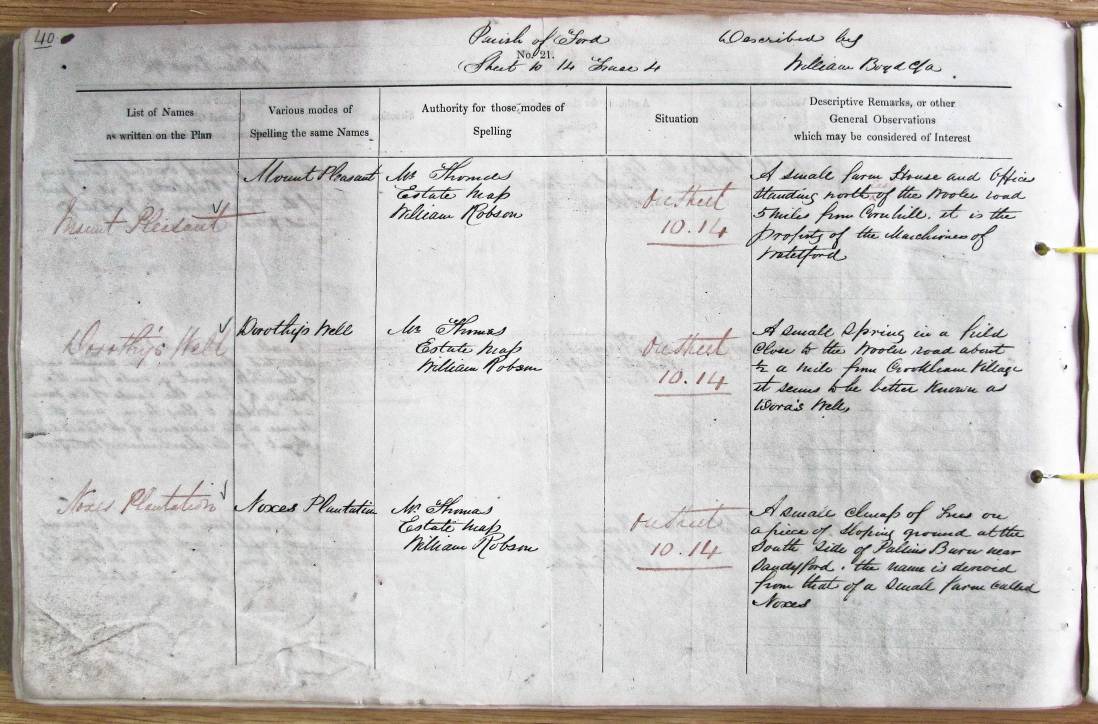 40
Parish of Ford
No. 21.
Sheet 10 14 Trace 4
Described by
William Boyd c/a
List of Names
as written on the Plan
Various modes of
Spelling the same Names
Authority for those modes of
Spelling
Situation
Descriptive Remarks, or other
General Observations
which may be considered of Interest
Mount Pleasant
Mount Pleasant
Mr Thomas
Estate Map
William Robson
On Sheet
10.14
A small farm House and Office
Standing north of the Wooler road
5 miles from Cornhill. it is the
Property of the Marchioness of
Waterford
Dorothy's Well
Dorothy's Well
Mr Thomas
Estate Map
William Robson
On Sheet
10.14
A small Spring in a field
Close to the Wooler road about
½ a mile from Crookham Village
it seems to be better Known as
Dora's Well,
Noxes Plantation
Noxes Plantation
Mr Thomas
Estate Map
William Robson
On Sheet
10.14
A small clump of Trees on
a piece of Sloping ground at the
South Side of Pallins Burn near
Sandyford. the name is derived
from that of a small farm called
Noxes